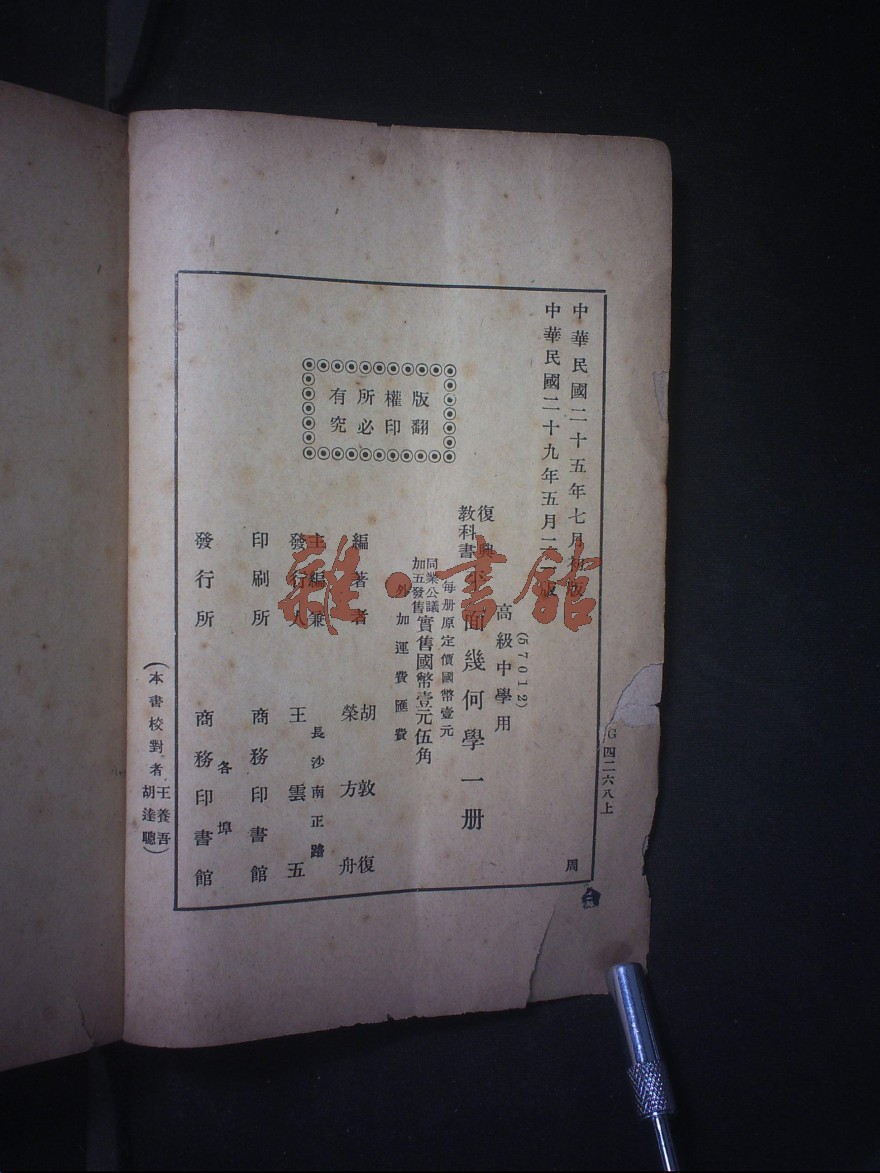 中華民國二十五年七月初版
中華民國二十九年五月二 版
周
版權所有
翻印必究
復興
教科書
平面幾何學一册
高級中學用
(57012)
每册原定價國幣壹元
同業公議
加五發售
實售國幣壹元伍角
外加運費匯費
編著者
胡敦復
榮方舟
主編兼
發行人
長沙南正路
王雲五
印刷所
商務印書館
發行所
各埠
商務印書館
(本書校對者
王養吾
胡達聰)
G四二六八上
雜·書館